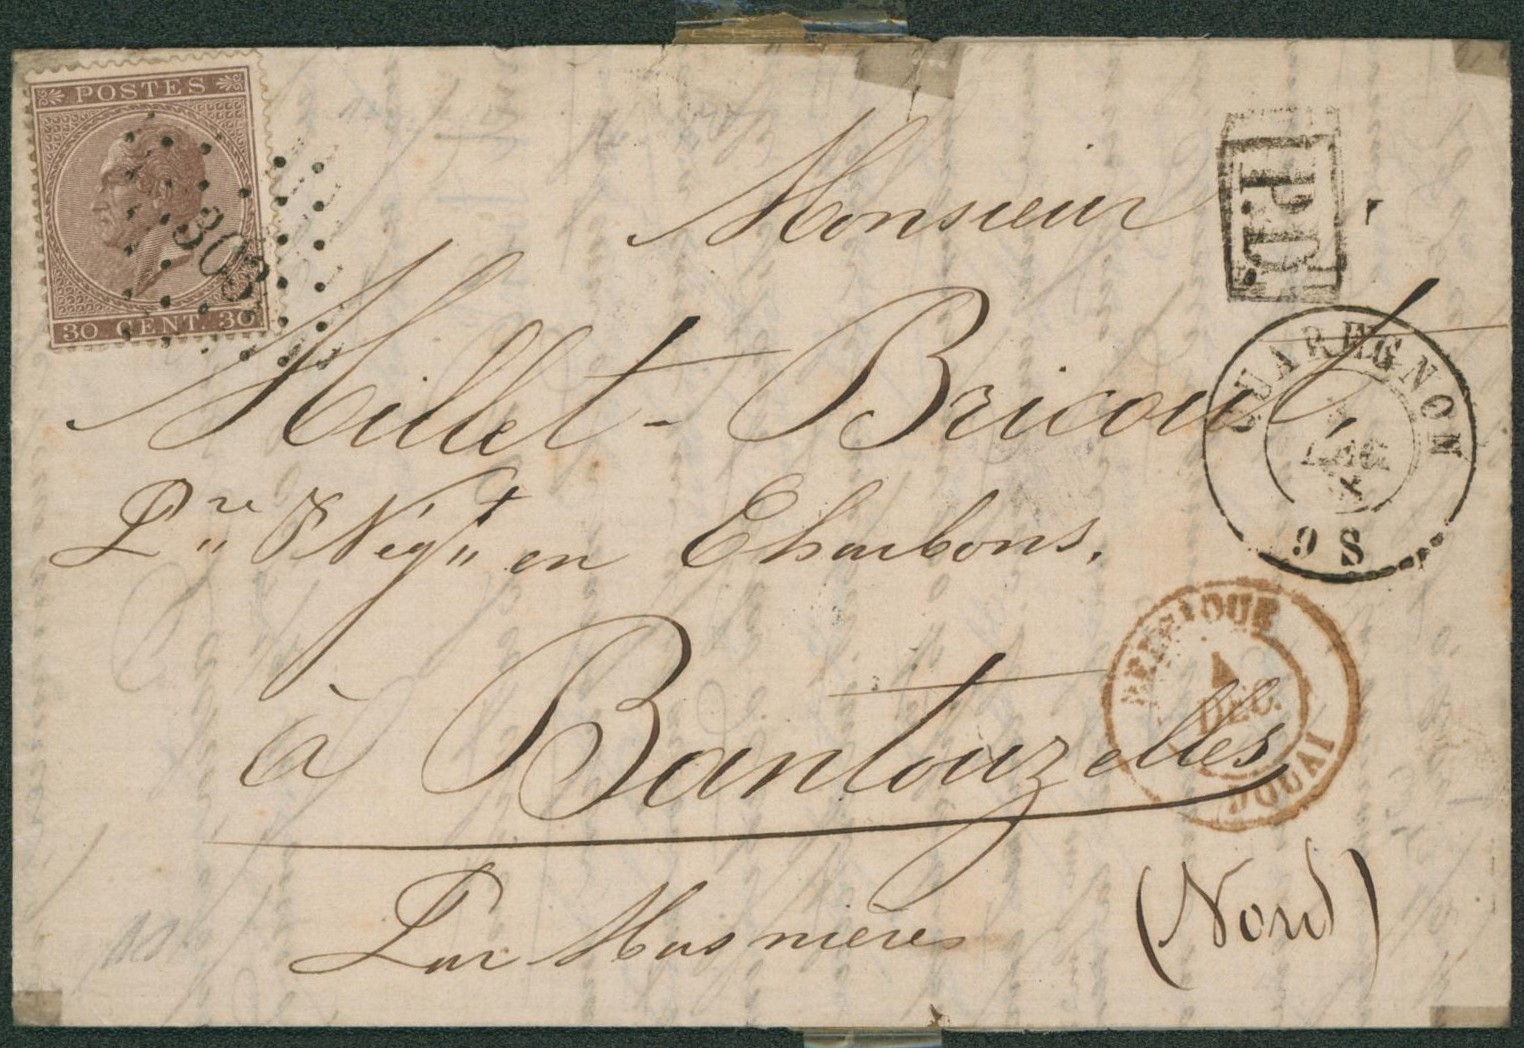 POSTES
30 CENT. 30
Monsieur
P.D.
Millet-Bricout,
QUAREGNON
4
DEC
P.re & Neg.t en Charbons.
BELGIQUE
4
DEC.
DOUAI
à Bantouzelles
Par Masnières
(Nord)